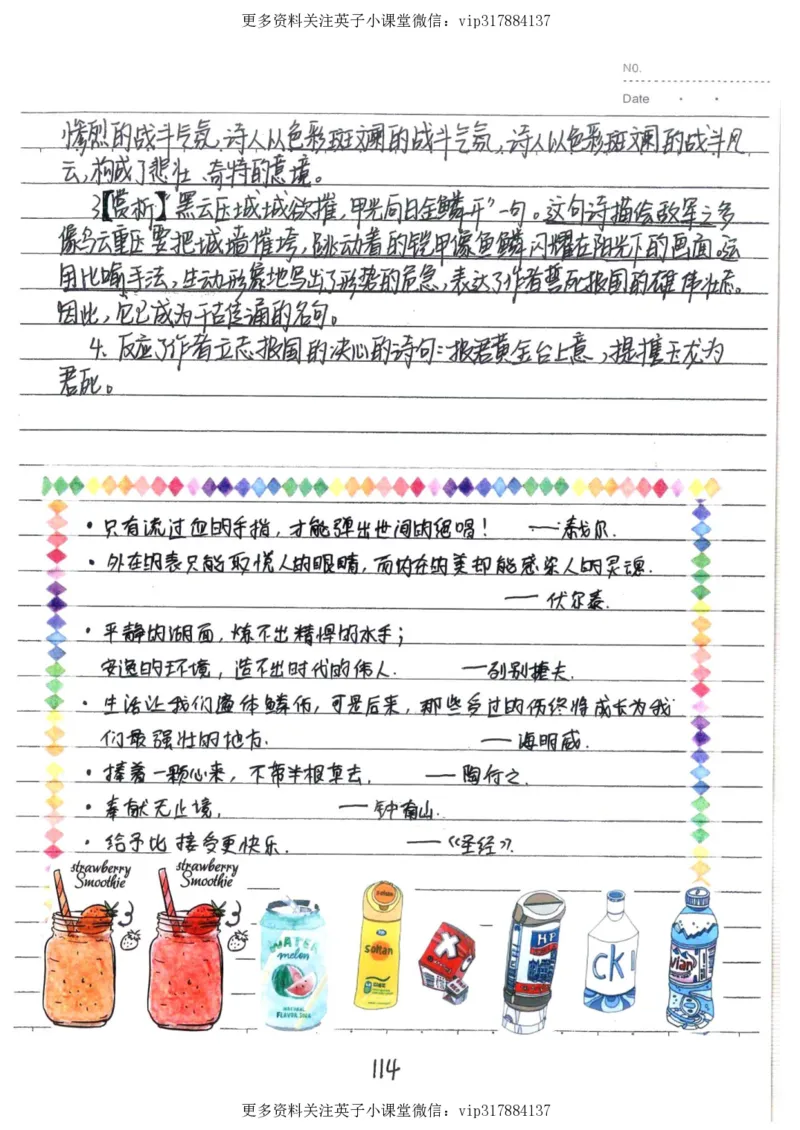 更多资料关注英子小课堂微信：vip317884137
NO.
Date
惨烈的战斗气氛，诗人以色彩斑斓的战斗气氛，诗人以色彩斑斓的战斗风
云，构成了悲壮、奇特的意境。
3【赏析】"黑云压城城欲摧，甲光向日金鳞开"一句。这句诗描绘敌军之多
像乌云重压要把城墙催垮，跳动着的铠甲像鱼鳞闪耀在阳光下的画面，运
用比喻手法，生动形象地写出了形势的危急，表达了作者誓死报国的雄伟壮志。
因此，它已成为千古传诵的名句。
4. 反应了作者立志报国的决心的诗句：报君黄金台上意，提携玉龙为
君死。
·只有流过血的手指，才能弹出世间的绝唱！ ——泰戈尔.
·外在的美只能取悦人的眼睛，而内在的美却能感染人的灵魂.
——伏尔泰.
·平静的湖面，炼不出精悍的水手；
安逸的环境，造不出时代的伟人. ——列别捷夫.
·生活让我们遍体鳞伤，可是后来，那些受过的伤终将成长为我
们最强壮的地方. ——海明威.
·捧着一颗心来，不带半根草去. ——陶行之.
·奉献无止境. ——钟南山.
·给予比接受更快乐. ——《圣经》.
strawberry
Smoothie
strawberry
Smoothie
WATER
melon
NATURAL
FLAVOR SODA
Soltan
HP
CKI
vian
114
更多资料关注英子小课堂微信：vip317884137